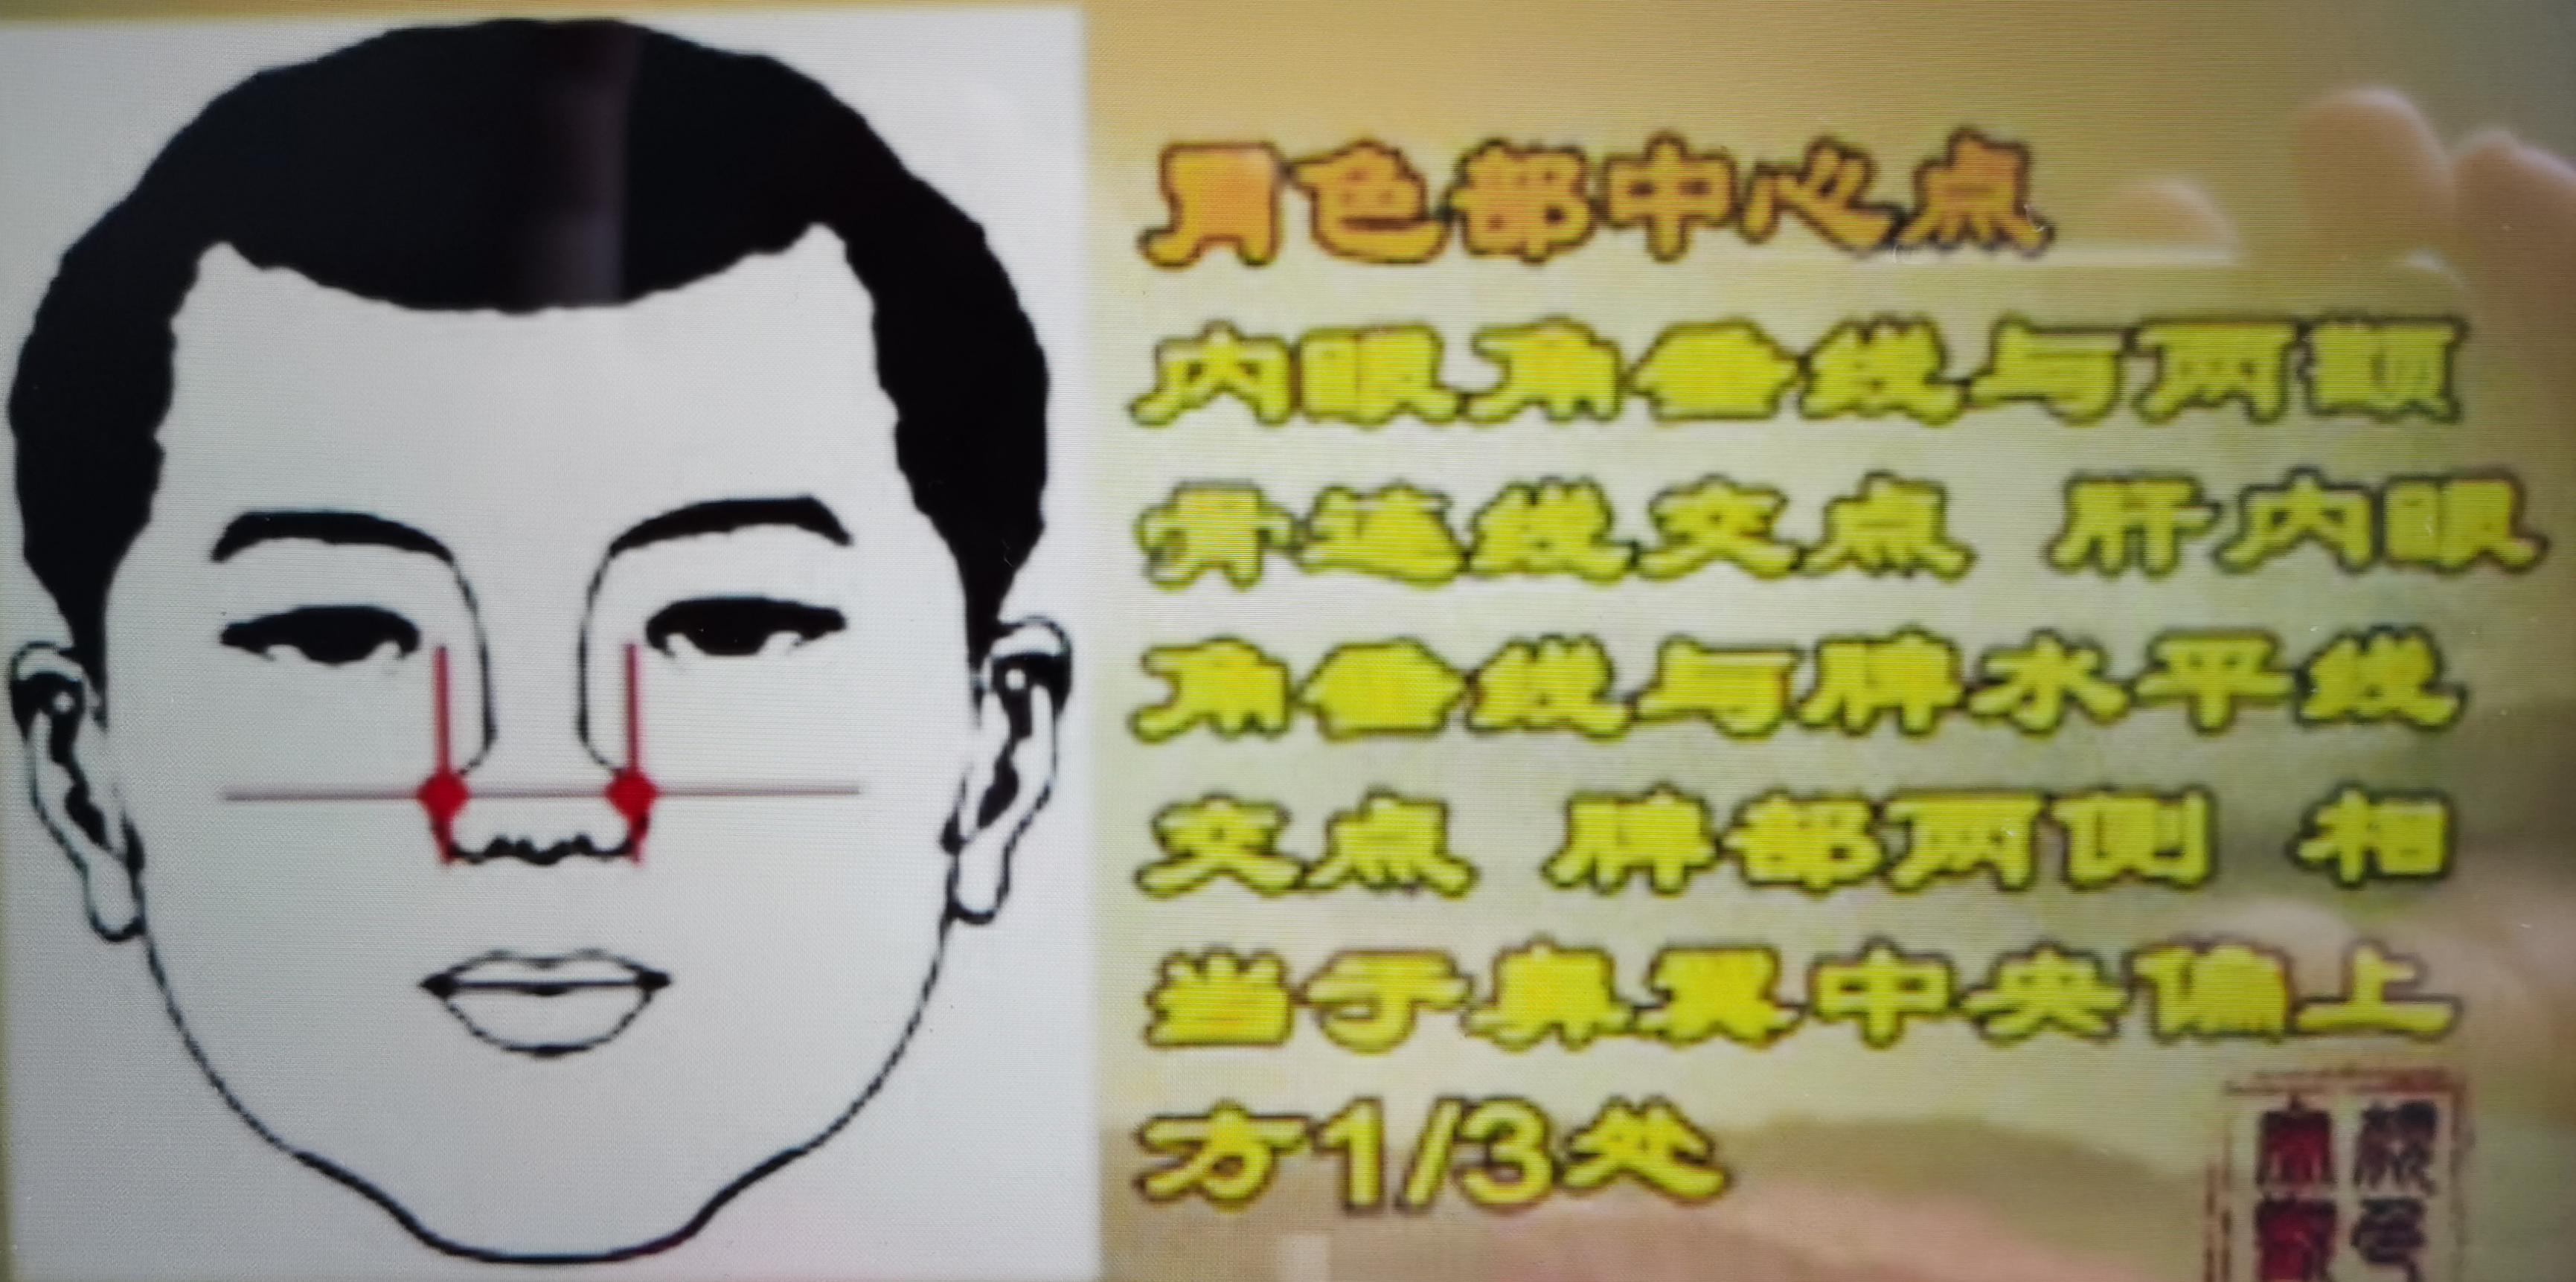 胃色部中心点
内眼角垂线与两颧
骨连线交点 肝内眼
角垂线与脾水平线
交点 脾部两侧 相
当于鼻翼中央偏上
方1/3处